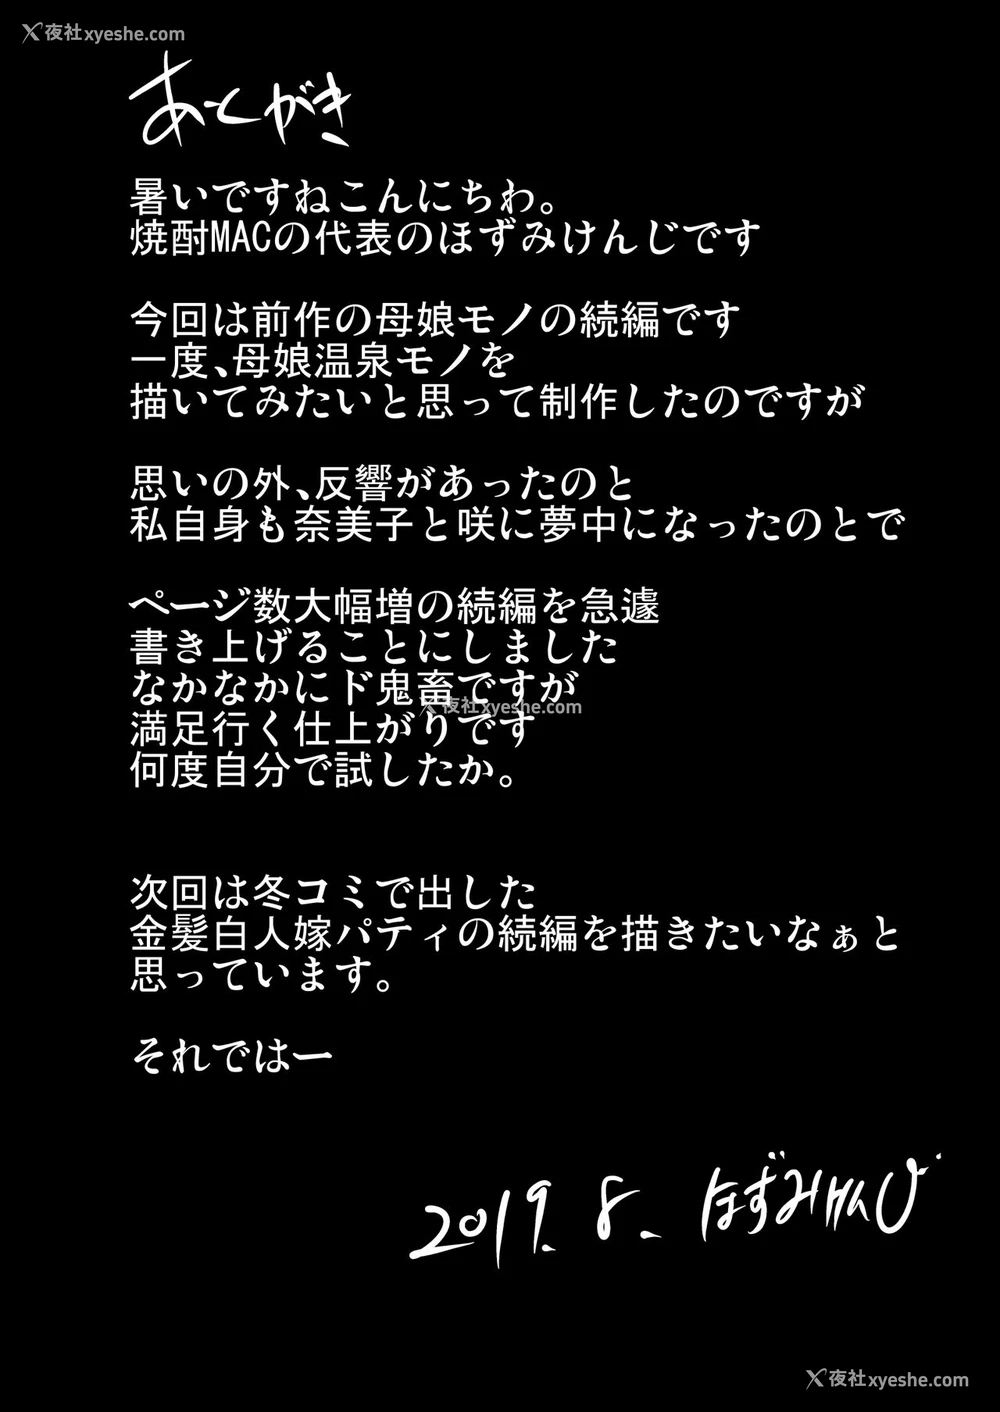 夜社xyeshe.com
あとがき
暑いですねこんにちわ。
焼酎MACの代表のほずみけんじです
今回は前作の母娘モノの続編です
一度、母娘温泉モノを
描いてみたいと思って制作したのですが
思いの外、反響があったのと
私自身も奈美子と咲に夢中になったのとで
ページ数大幅増の続編を急遽
書き上げることにしました
なかなかにド鬼畜ですが
夜社xyeshe.com
満足行く仕上がりです
何度自分で試したか。
次回は冬コミで出した
金髪白人嫁パティの続編を描きたいなぁと
思っています。
それではー
2019.8. ほずみけんじ
夜社xyeshe.com